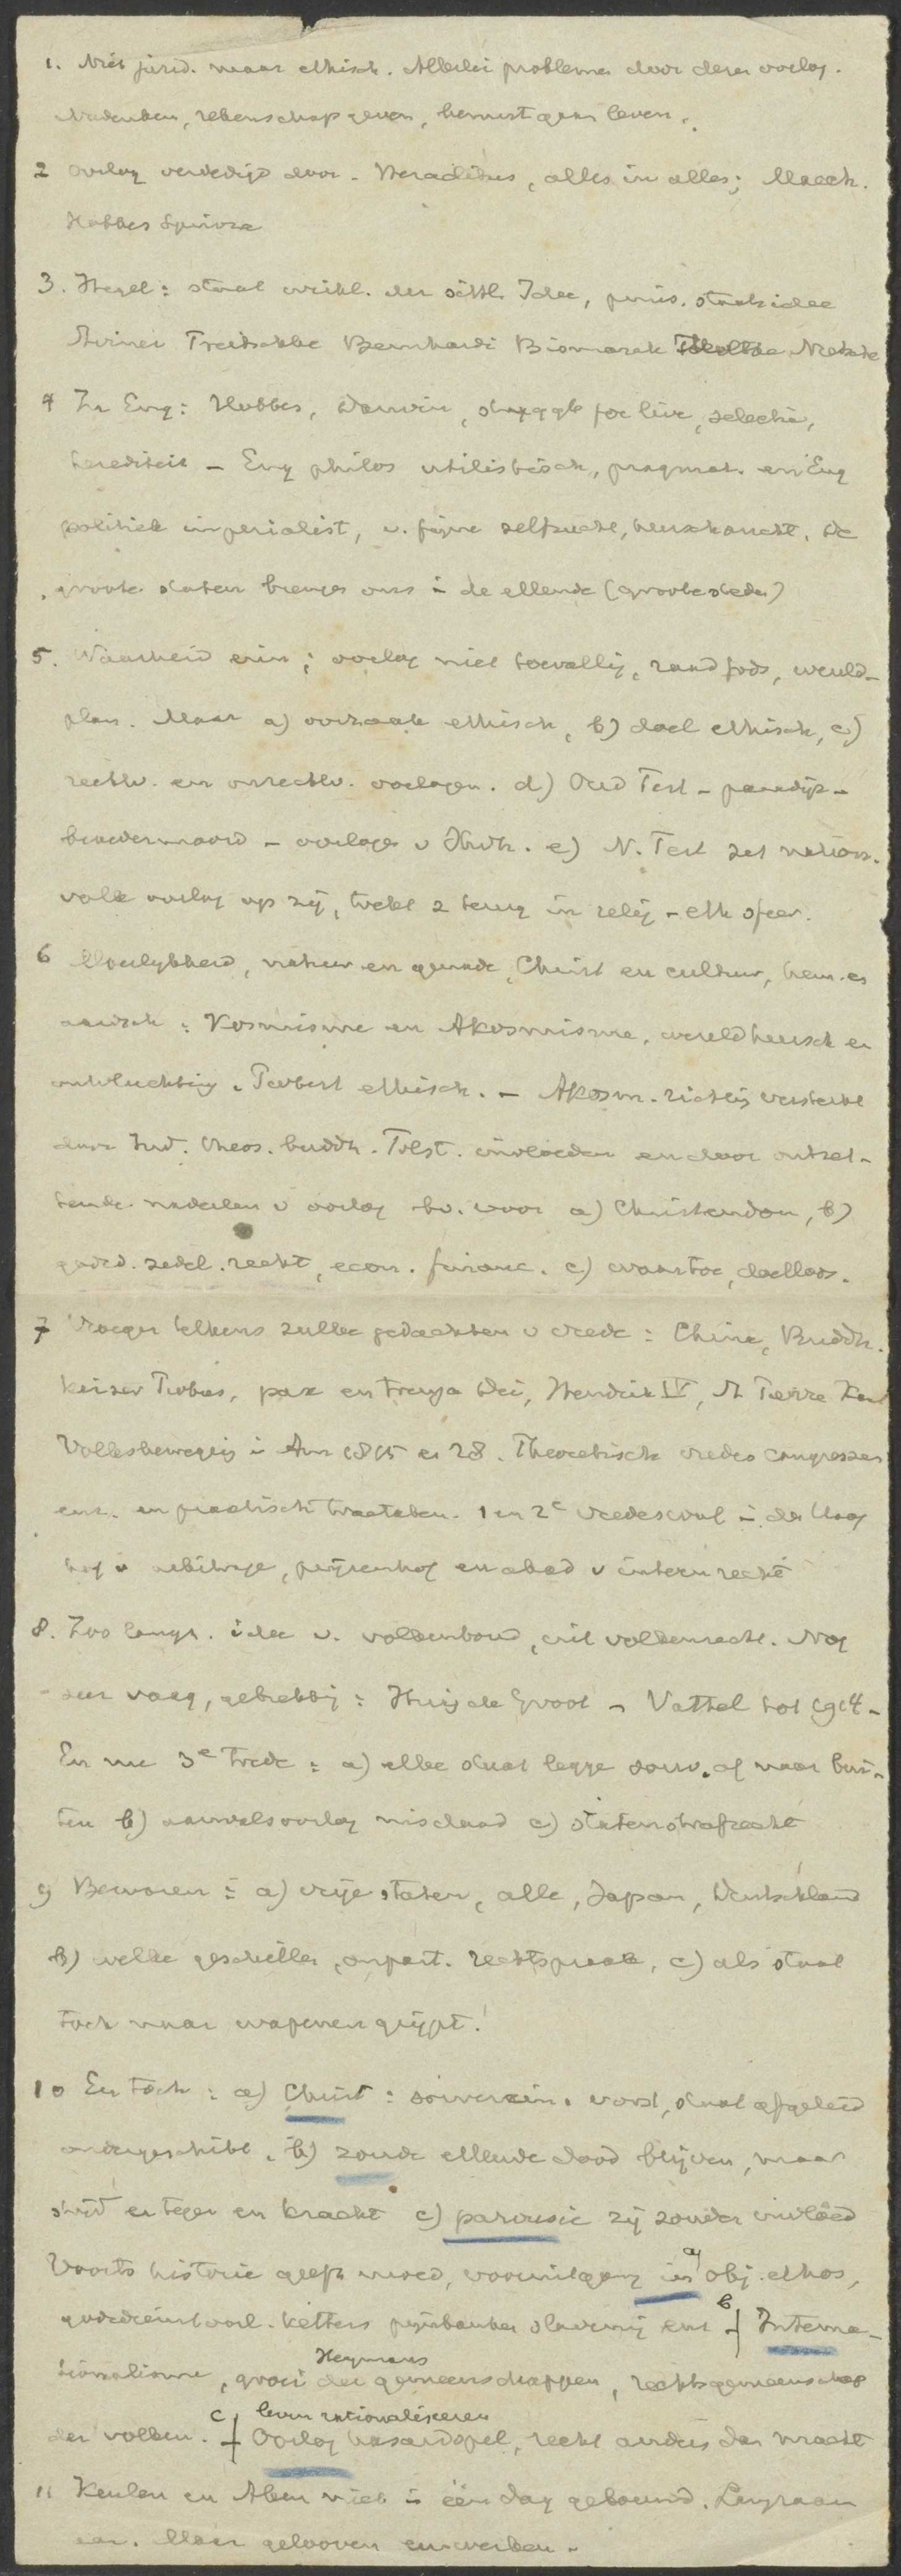 1. Niet jurid. maar ethisch. Allerlei problemen door dezen oorlog.
Nadenken, rekenschap geven, bewust gaan leven.
2 Oorlog verdedigd door - Heraclitus, alles in alles; Macch.
Hobbes Spinoza
3. Hegel: staat wirkl. der sittl. Idee, pruis. staatsidee
Treitschke Bernhardi Bismarck Nietzsche
4 In Eng: Hobbes, Darwin, struggle for live, selectie,
herediteit - Eng philos utilistisch, pragmat. en Eng
politiek imperialist, v. fijne zelfzucht, heerschzucht. De
groote staten brengen ons in de ellende (groote steden)
5. Waarheid erin; oorlog niet toevallig, raad Gods, wereld-
plan. Maar a) oorzaak ethisch, b) doel ethisch, c)
rechtv. en onrechtv. oorlogen. d) Oud Test - paradijs -
broedermoord - oorlogen v Heidn. e) N. Test zet nation.
volk oorlog op zij, trekt z terug in relig - eth sfeer.
6 Moeilijkheid, natuur en genade, Christ en cultuur, hem. en
aardsch: Kosmisme en Akosmisme, wereldheersch en
ontvluchting. Toetst ethisch. - Akosm. richting versterkt
door Ind. theos. buddh. Tolst. invloeden en door ontzet-
tende nadeelen v oorlog bv. voor a) Christendom, b)
godsd. zedel. recht, econ. financ. c) waartoe, doelloos.
7 Vroeger telkens zulke gedachten v vrede: China, Buddh.
keizer Probus, pax en treuga Dei, Hendrik IV, St Pierre Kant
Volksbeweging in Am 1815 en 28. Theoretisch vredes congressen
enz. en practisch tractaten. 1 en 2e vredesconf in den Haag
hof v arbitrage, prijzenhof en acad v intern recht
8. Zoo langs. idee v. volkenbond, uit volkenrecht. Nog
zeer vaag, gebrekkig: Hugo de Groot - Vattel tot 1914 -
En nu 3e trede: a) elke staat legge souv. af naar bui-
ten b) aanvalsoorlog misdaad c) statenstrafrecht
9 Bezwaren: a) vrije staten, alle, Japan, Duitschland
b) welke geschillen, onpart. rechtspraak, c) als staat
toch naar wapenen grijpt!
10 En toch: a) Christ: souverein. vorst, staat afgeleid
ondergeschikt. b) zonde ellende dood blijven, maar
strijd er tegen en kracht c) parousie zij zonder invloed
Voorts historie geeft moed, vooruitgang in a) obj. ethos,
godsdienstoorl. ketters pijnbanken slavernij enz b) Interna-
tionalisme, groei der gemeenschappen, rechtsgemeenschap
Heymans
der volken. c) Oorlog hasardspel, recht anders dan macht
leven rationaliseeren
11 Keulen en Aken niet in één dag gebouwd. Langzaam
aan. Maar gelooven en werken.